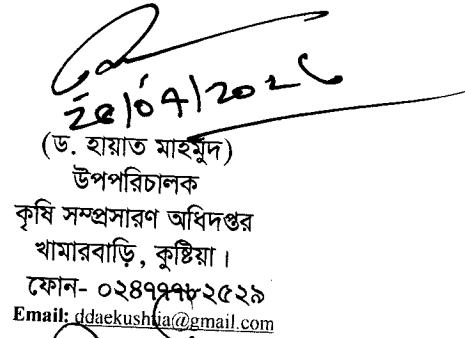 20/04/2026
(ড. হায়াত মাহমুদ)
উপপরিচালক
কৃষি সম্প্রসারণ অধিদপ্তর
খামারবাড়ি, কুষ্টিয়া।
ফোন- ০২৪৭৭৭৮২৫২৯
Email: ddaekushtia@gmail.com